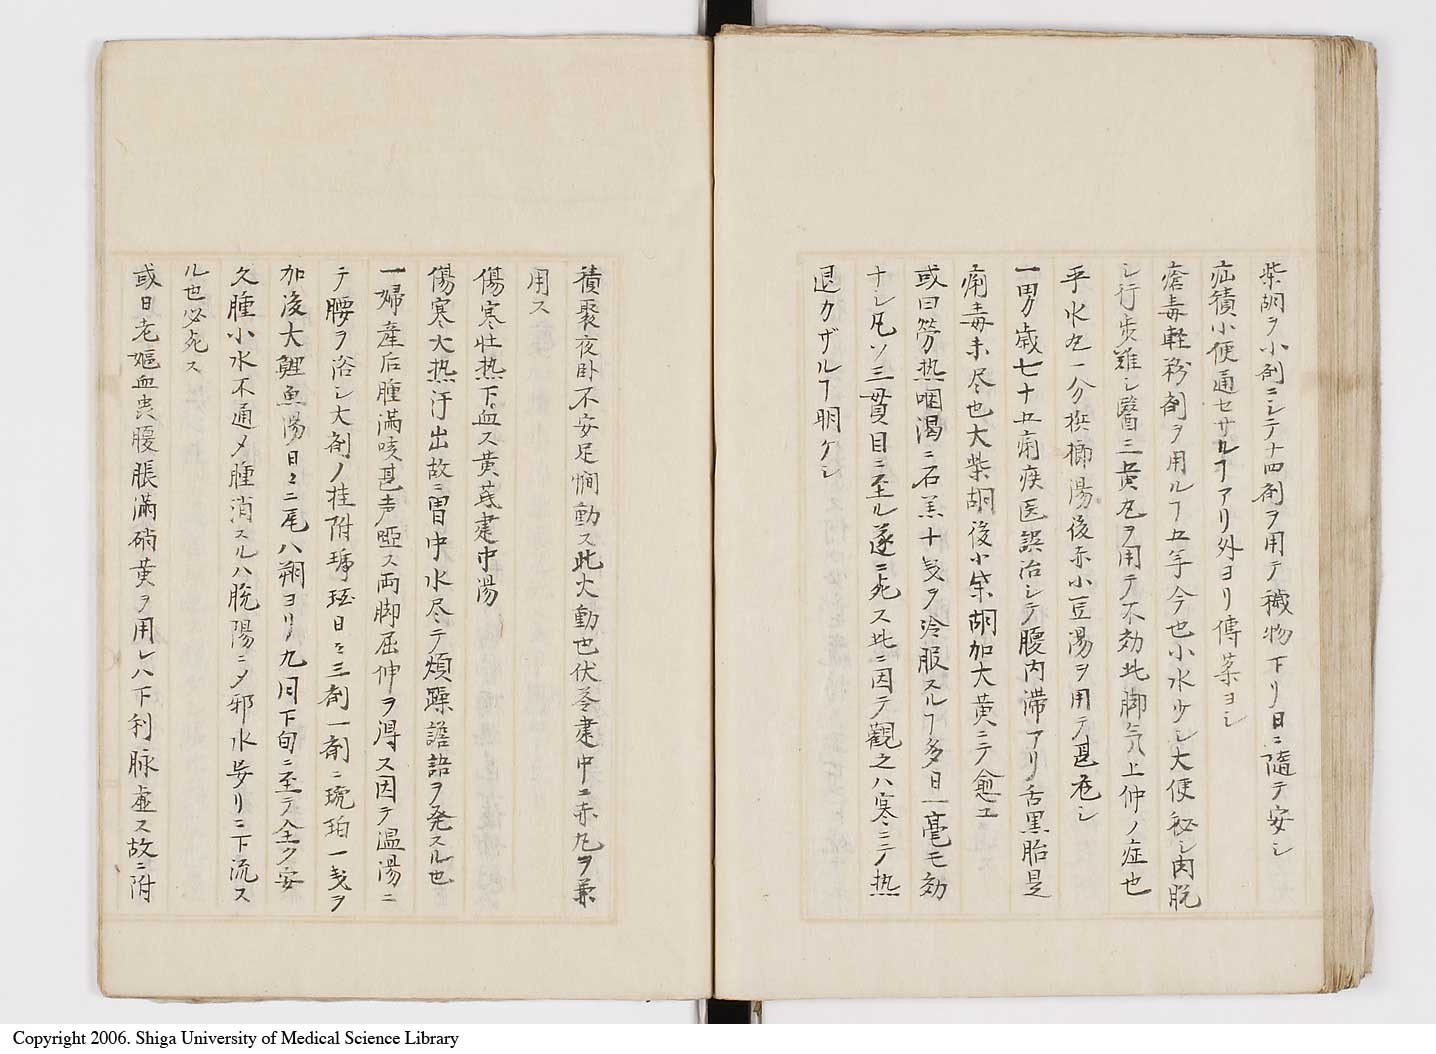 柴胡ヲ小剤ニシテ十四剤ヲ用テ穢物下リ日ニ隨テ安シ
疝積小便通セサルヿアリ外ヨリ傳薬ヨシ
瘡毒軽粉剤ヲ用ルヿ五年今也小水少シ大便秘シ肉脱
シ行歩難シ醫三黄丸ヲ用テ不効此脚気上仲ノ症也
平水丸一分檳榔湯後赤小豆湯ヲ用テ甚危シ
一男歳七十五痢疾医誤治シテ腹内滞アリ舌黒胎是
痢毒未尽也大柴胡後小柴胡加大黄ニテ愈エ
或曰労熱咽渇ニ石羔十戔ヲ冷服スルヿ多日一毫モ効
ナシ凡ソ三貫目ニ至ル遂ニ死ス此ニ因テ觀之ハ寒ニテ熱
退カザルヿ明ケシ
積聚夜卧不安足惘動ス此火動也伏苓建中ニ赤丸ヲ兼
用ス
傷寒壮热下血ス黄茋建中湯
傷寒大热汗出故ニ胃中水尽テ煩躁譫語ヲ発スル也
一婦産后腫満咳甚声啞ス両脚屈伸ヲ得ス因テ温湯ニ
テ腰ヲ浴シ大剤ノ桂附 日々三剤一剤ニ琥珀一戔ヲ
加後大鯉魚湯日々二尾八朔ヨリ九月下旬ニ至テ全ク安
久腫小水不通〆腫消スルハ脱陽ニ〆邪水歩リニ下流ス
ル也必死ス
或曰老嫗血喪腹脹満硝黄ヲ用レハ下利脉虚ス故ニ附
Copyright 2006. Shiga University of Medical Science Library